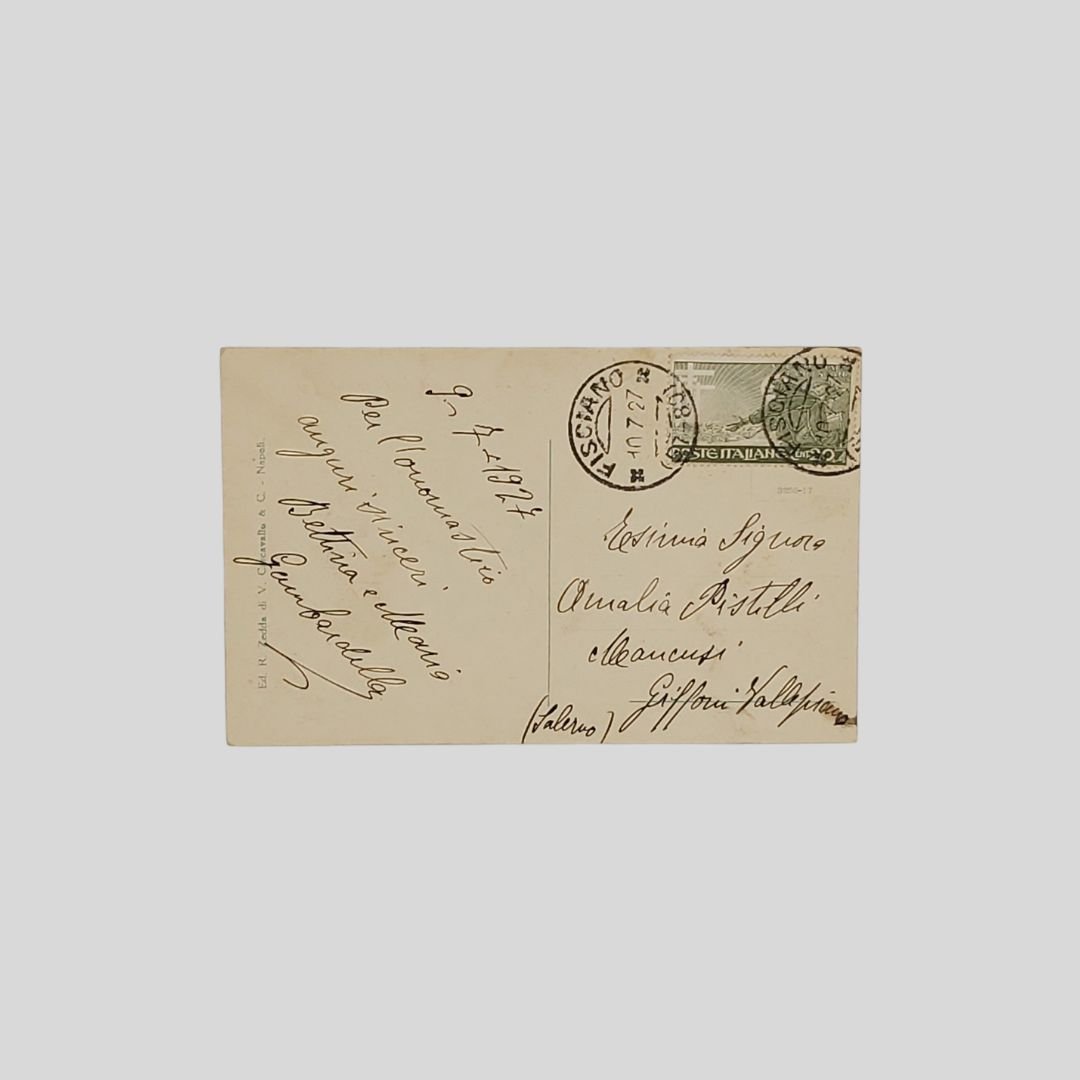 9-7-1927
Per l'onomastico
auguri sinceri
Bettina e Maria
Gambardella
Ed. R. Zedda di V. Carcavallo & C. - Napoli.
FISCIANO
10.7.27
FISCIANO
POSTE ITALIANE CENT. 20
3256-17
Esimia Signora
Amalia Pistilli
Mancusi
Giffoni Vallepiana
(Salerno)